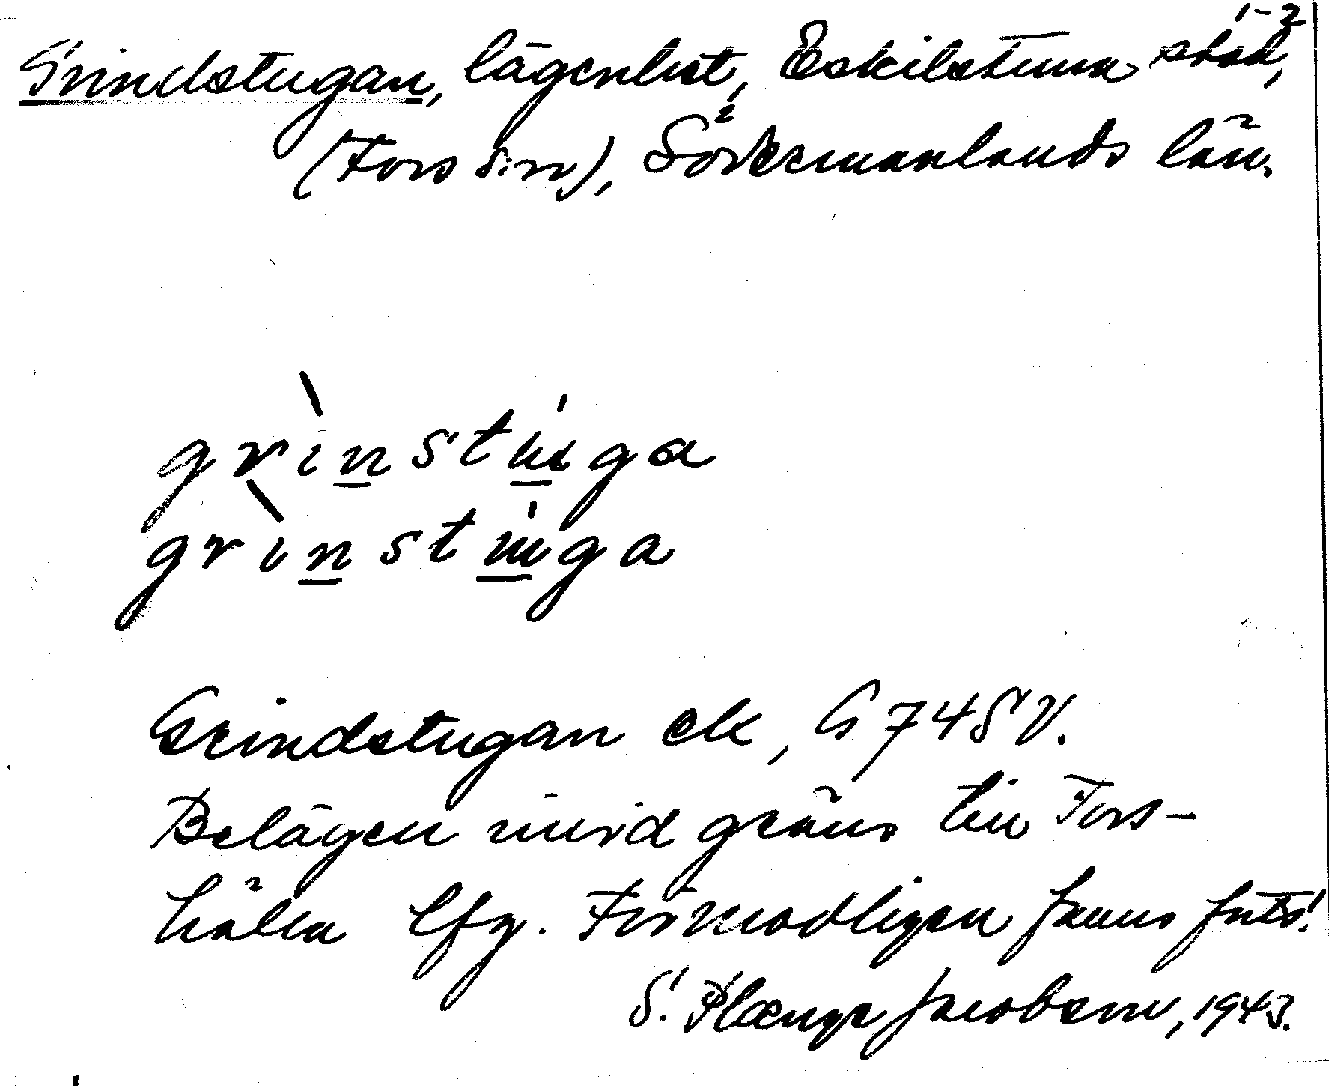 1-2
Grindstugan, lägenhet, Eskilstuna stad,
(Fors s:n), Södermanlands län.
grinstuga
grinstuga
Grindstugan ek, G 74 SV.
Belägen invid gräns till Tors-
hälla lfg. Förmodligen fanns
S. Plænge Jacobson, 1943.